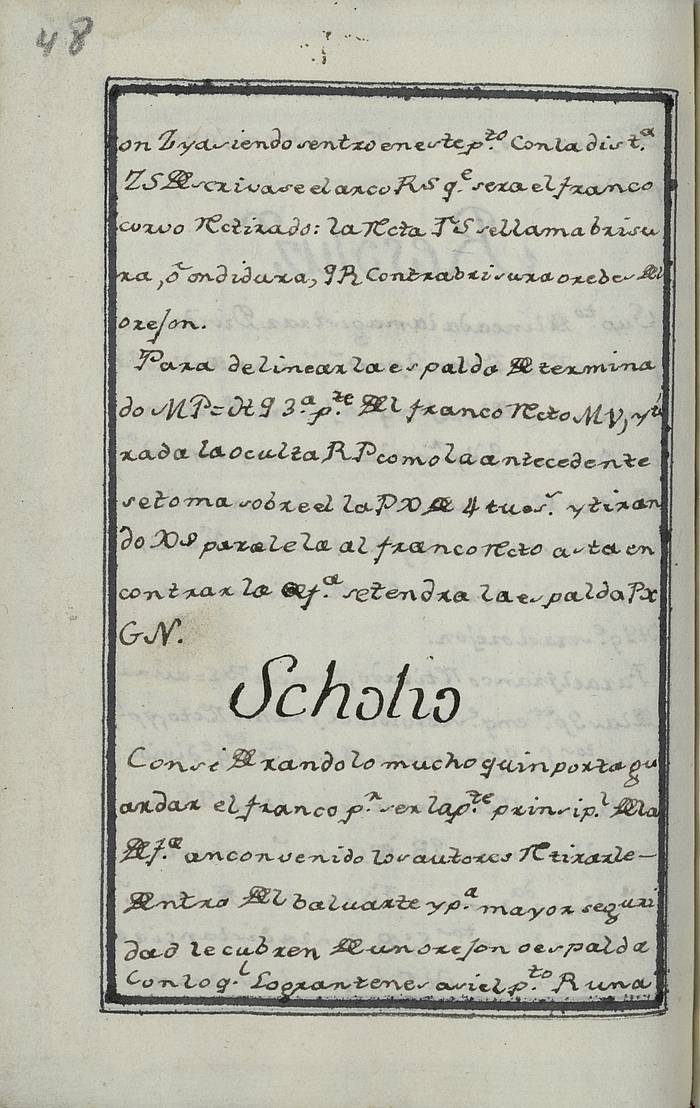 48
on Z yasiendosentroenestep.to Conladist.a
ZS Descrivaseelarco RS q.e seraelfranco
curvo Retirado: la Recta TS sellamabrisu
ra, ô ondidura, 9R Contrabrisuraorebes Del
orejon.
Para delinearlaespalda Determina
do MP= 3.a p.te Del franco Recto MV, y ti
radalaoculta RP comolaantecedente
setomasobreel la PX De 4 tues.s ytiran
do X8 paralela al franco Recto asta en
contrar la Def.a setendra laespalda Px
GN.
Scholio
ConsiDerandolomuchoquinportagu
ardar el franco p.r ser lap.te prinsip.l Dela
Def.a anconvenido losautores Retirarle-
Dentro Del baluarte yp.a mayor seguri
dad lecubren Deunorejon oespalda
Conloq.l Lograntenerasielp.to R una